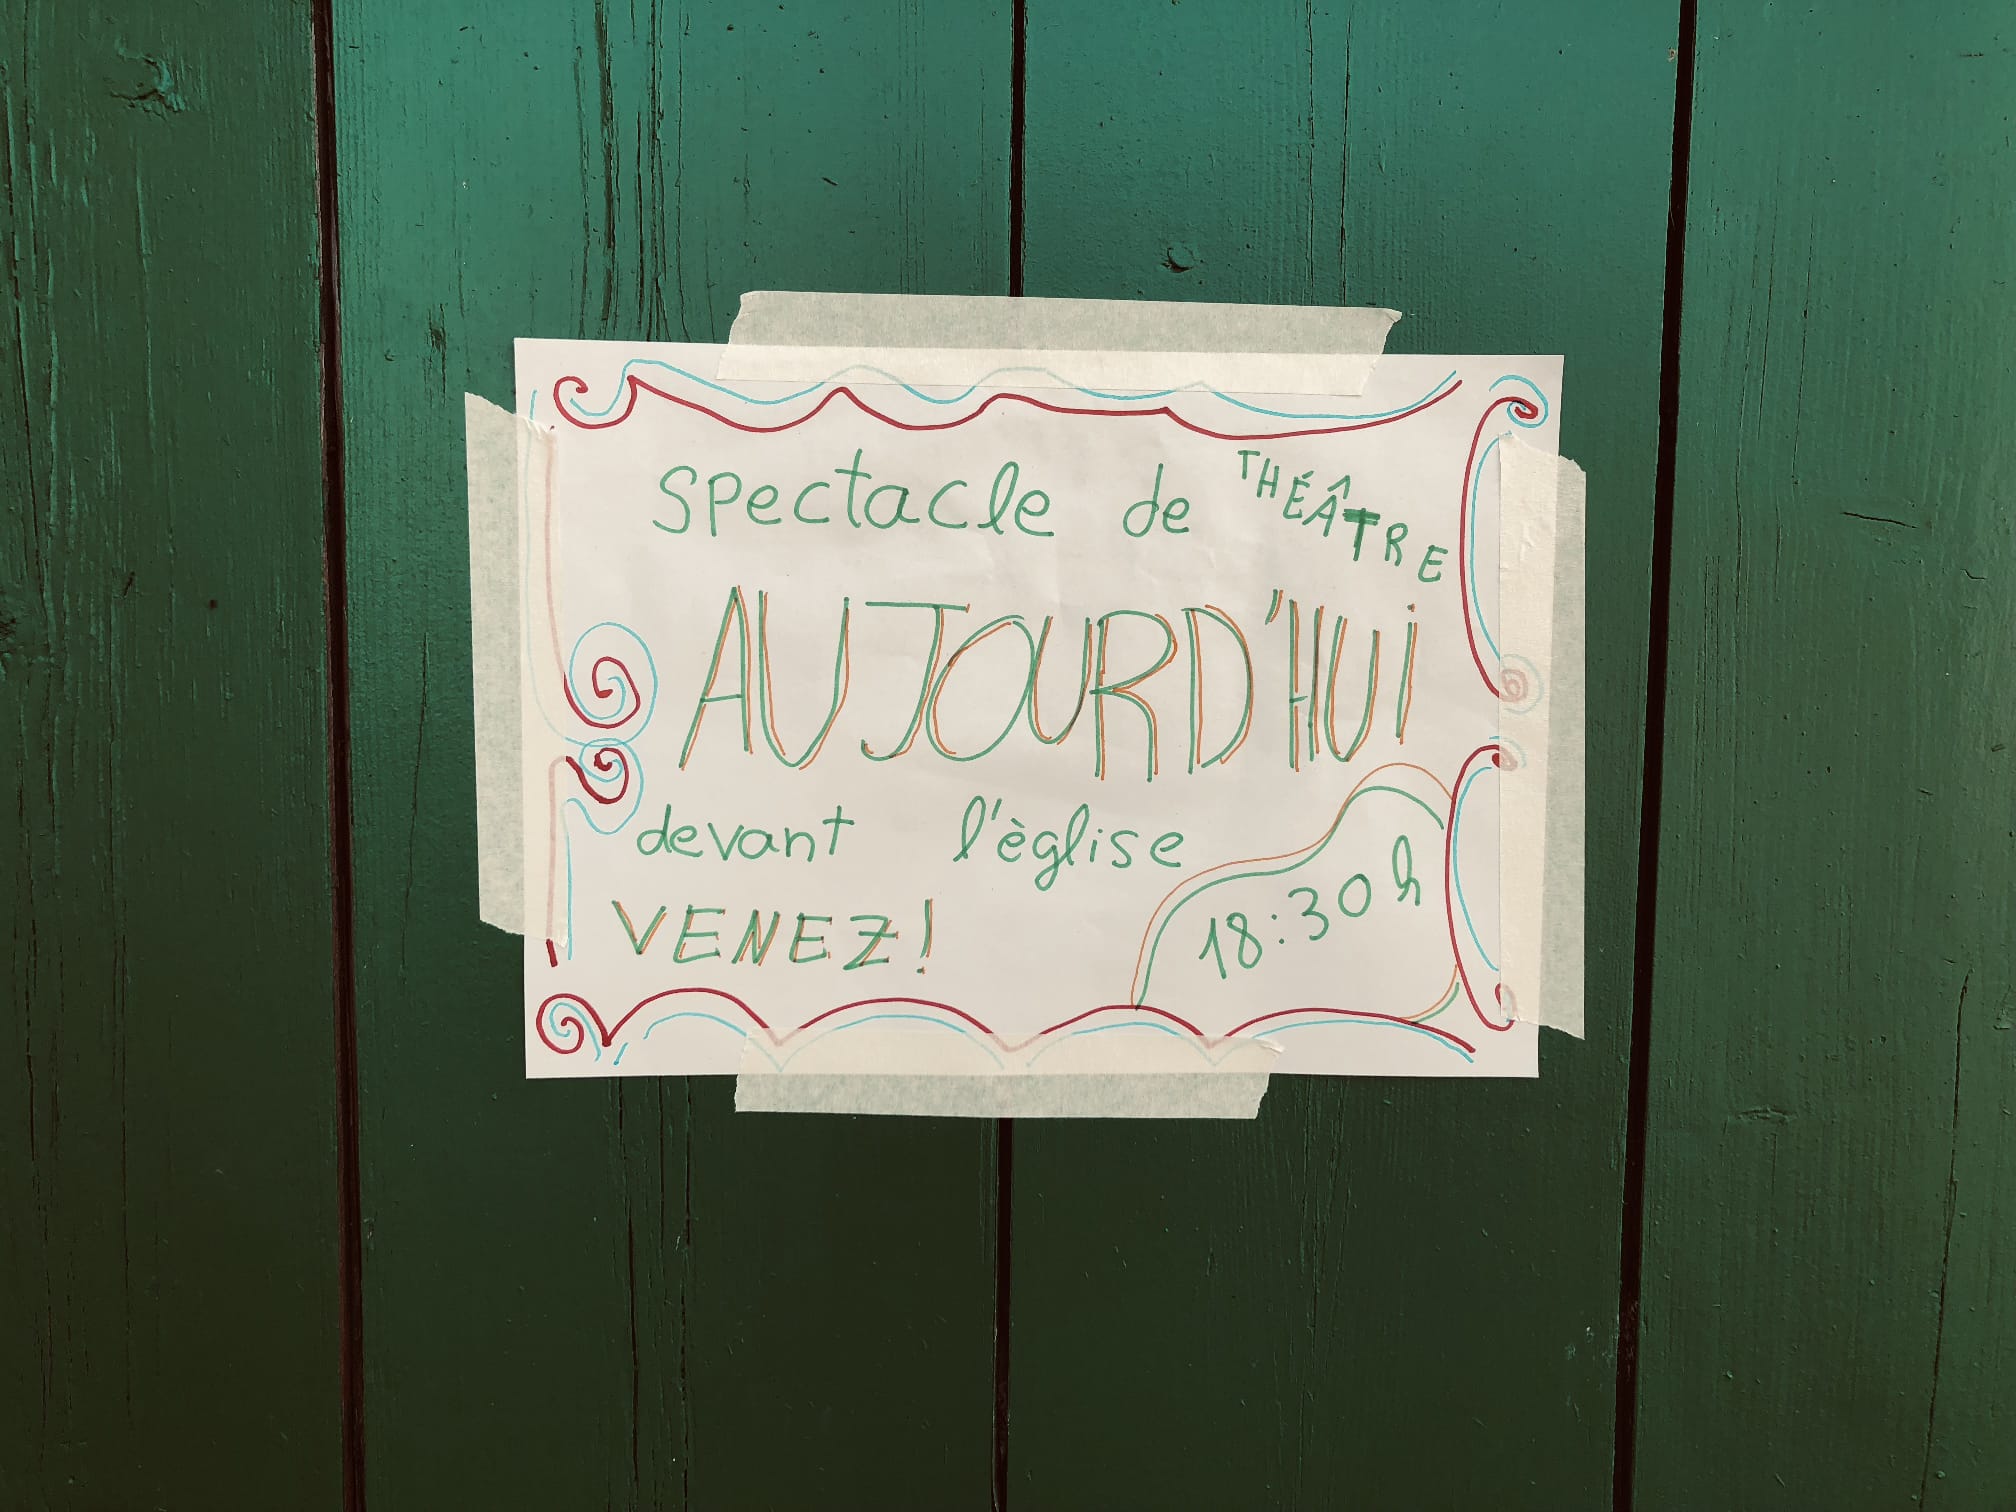 Spectacle de THÉÂTRE
AUJOURD'HUi
devant l'èglise
VENEZ!
18:30h